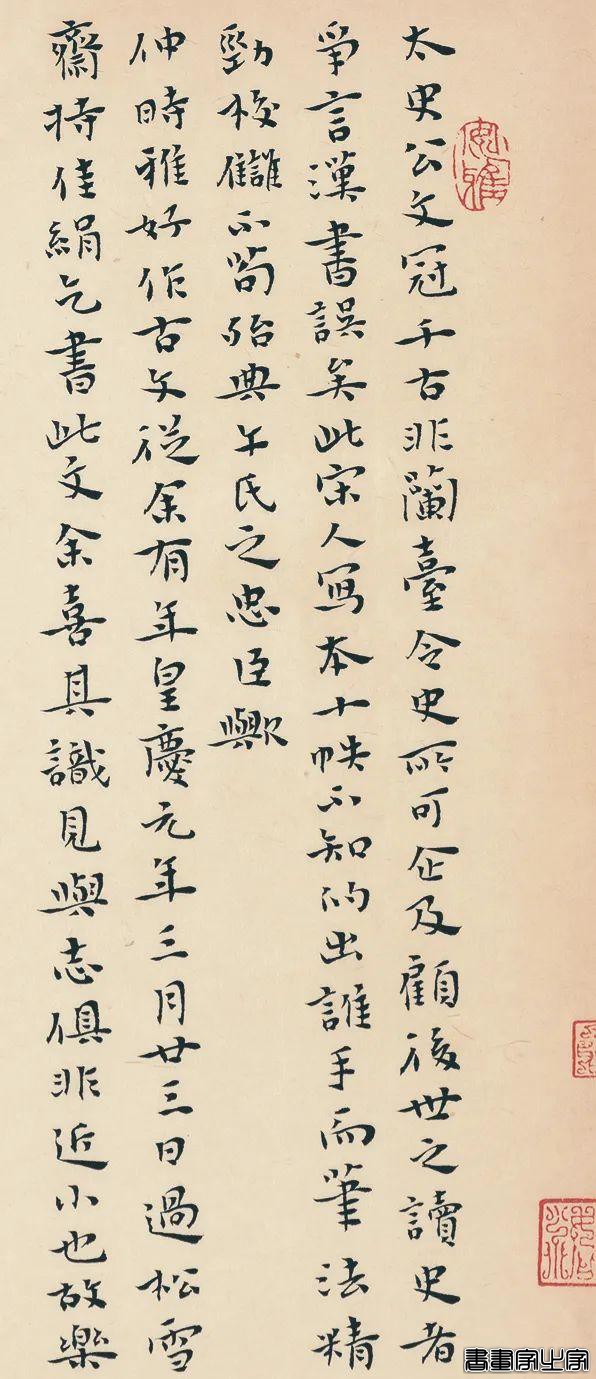 太史公文冠千古非蘭臺令史所可企及顧後世之讀史者
爭言漢書誤矣此宋人寫本十帙不知的出誰手而筆法精
勁校讎不苟殆典午氏之忠臣歟
仲時雅好作古文從余有年皇慶元年三月廿三日過松雪
齋持佳絹乞書此文余喜其識見與志俱非近小也故樂
書畫家之字